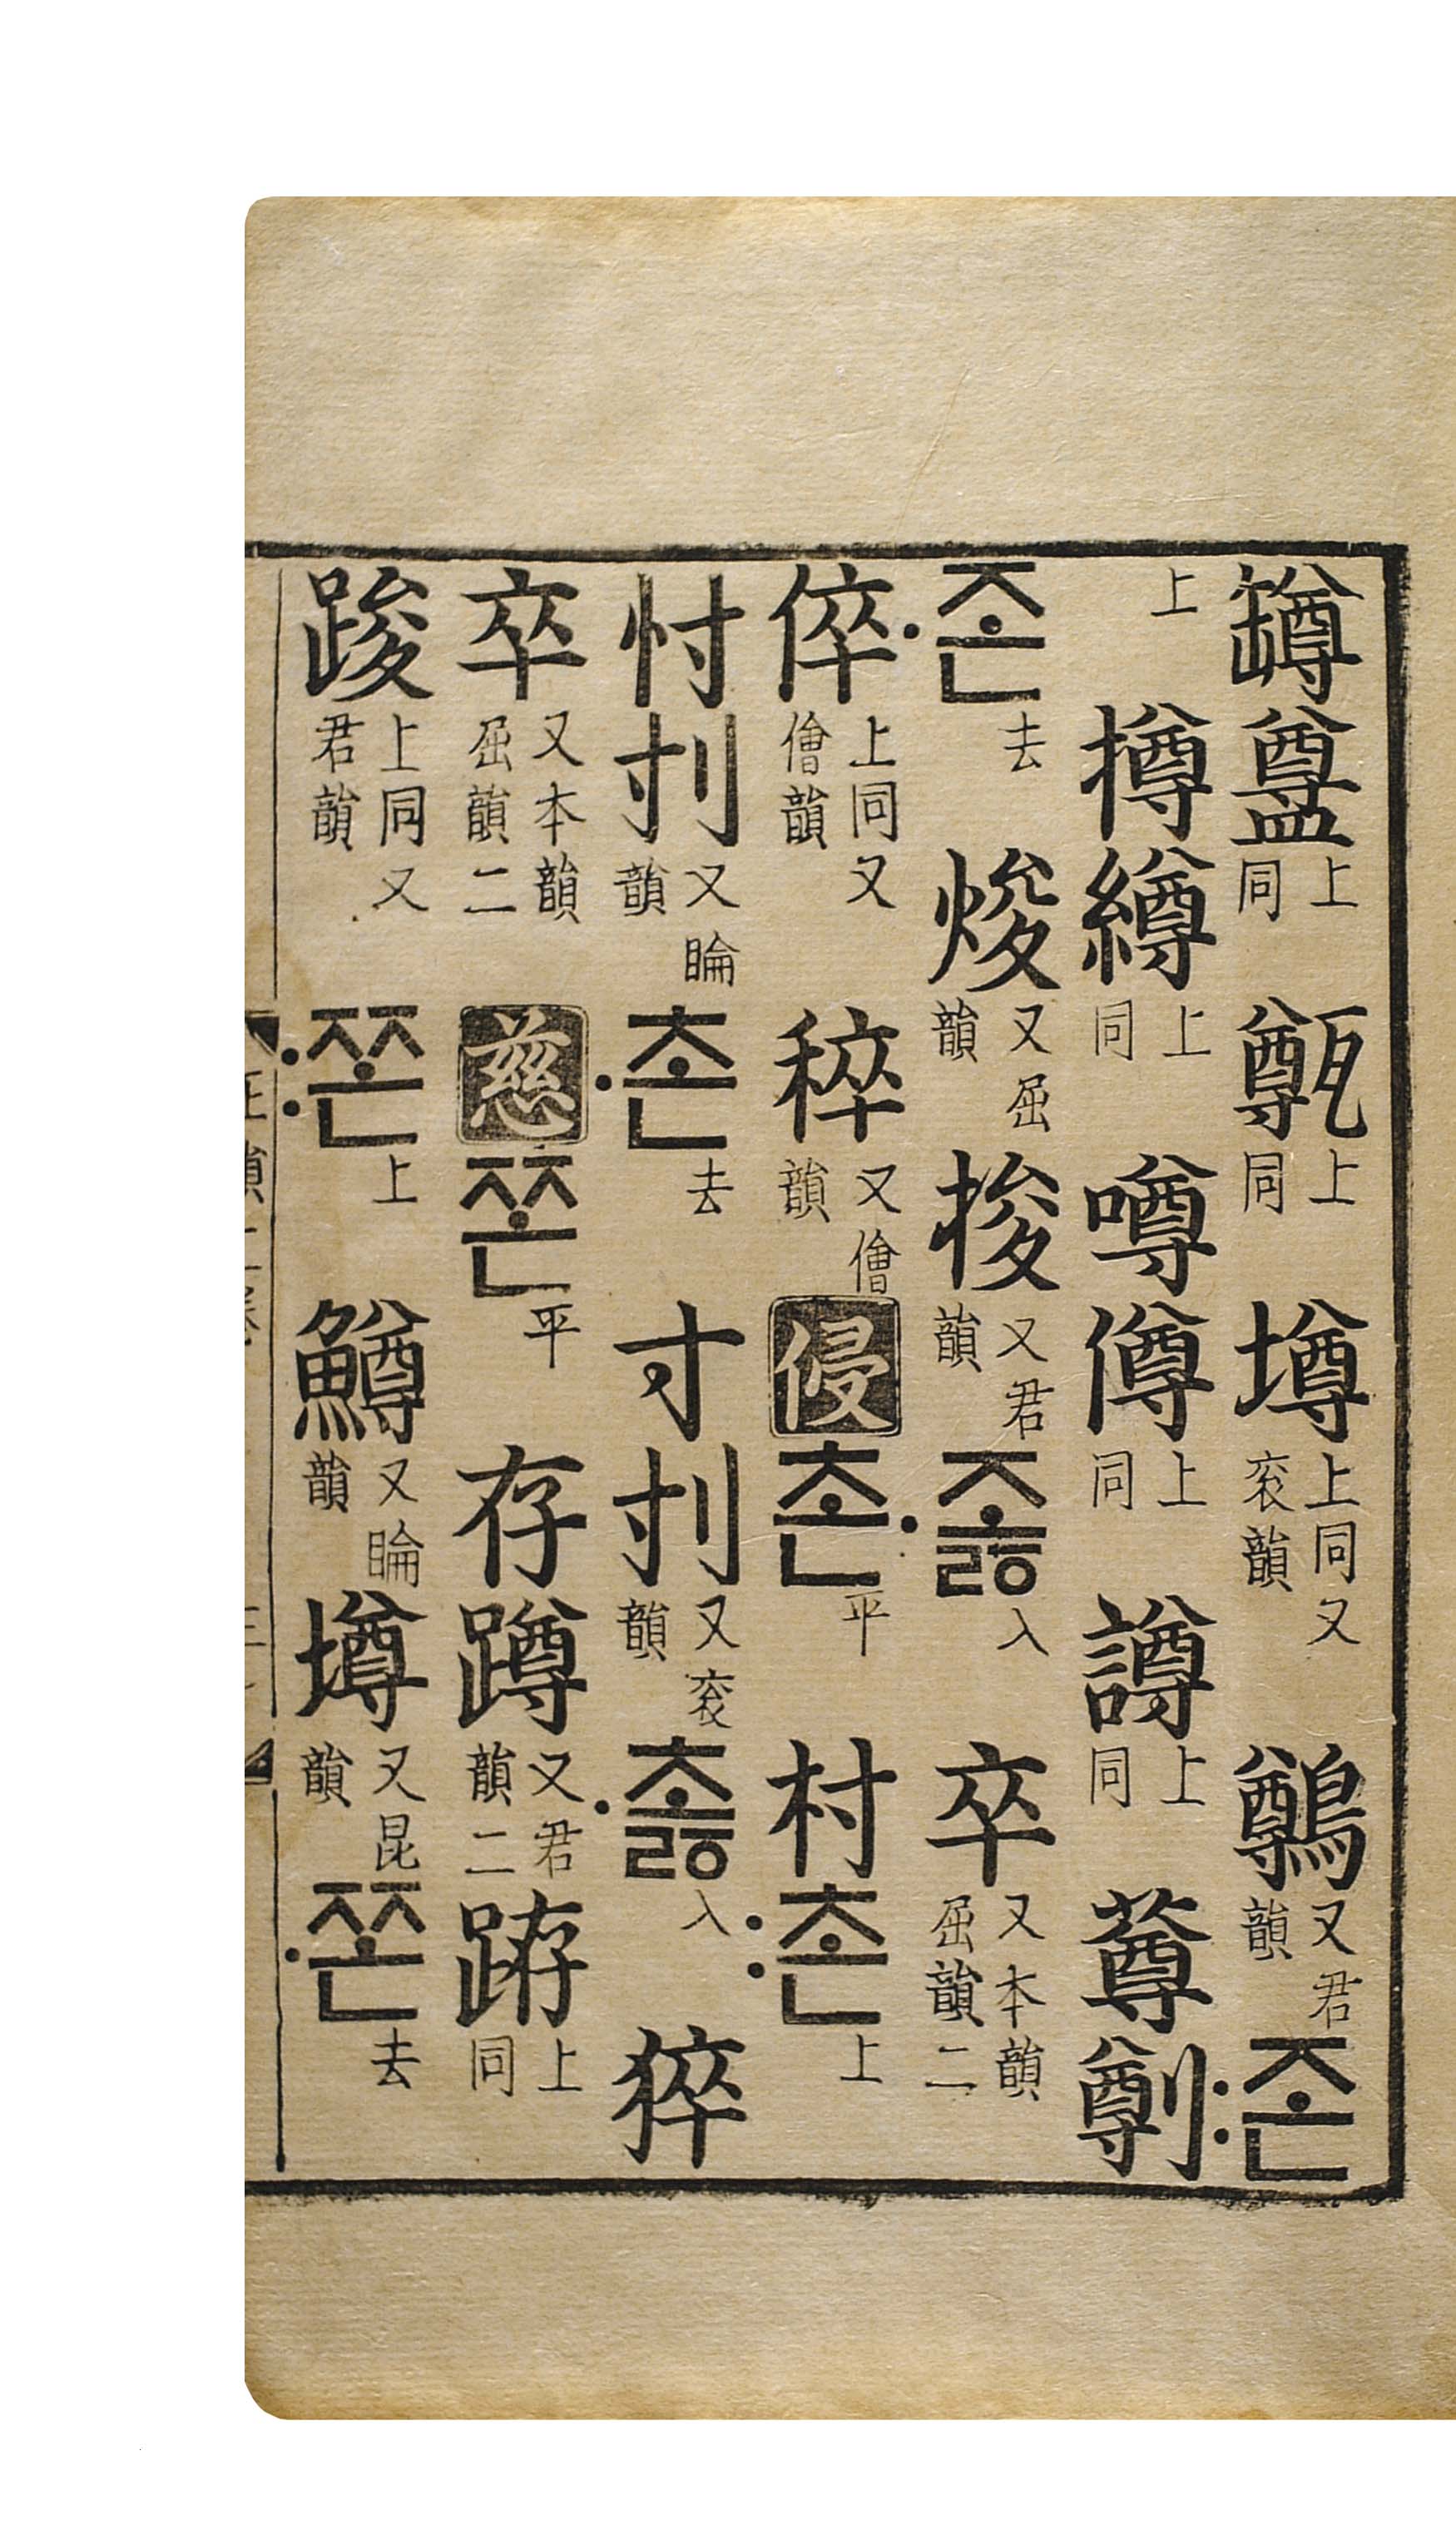 罇𥂴上同 上同墫上同又衮韻鷷又君韻:존
上撙繜上同噂僔上同譐上同䔿
·존去焌又屈韻捘又君韻·조ᇙ入卒又本韻屈韻二
倅上同又儈韻稡又儈韻侵촌平村:촌上
忖刌又睔韻·촌去寸刌又衮韻·초ᇙ入猝
卒又本韻屈韻二慈쫀平存蹲又君韻二 上同
踆上同又君韻:쫀上鱒又睔韻墫又昆韻·쫀去